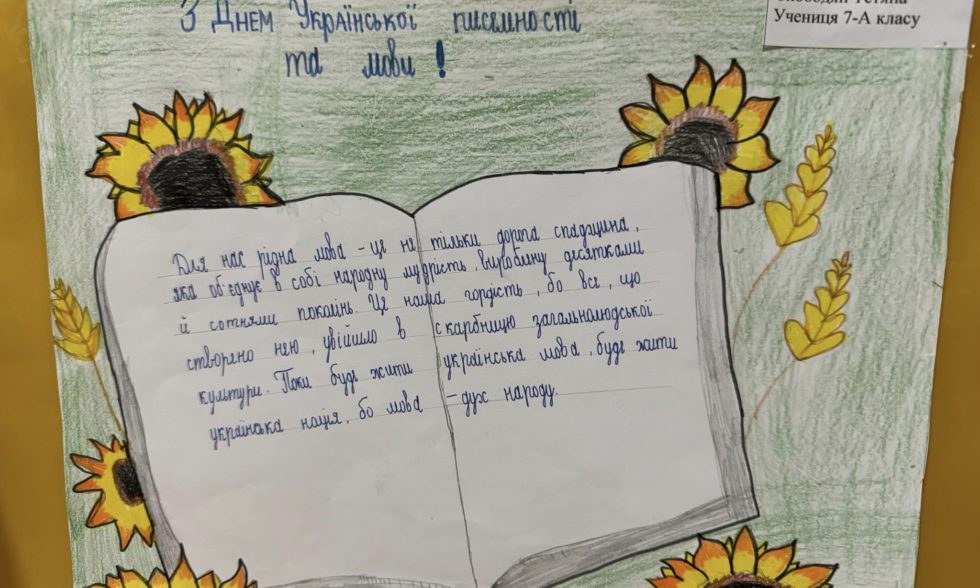 З Днем Української писемності
та мови!
Учениця 7-А класу
Для нас рідна мова - це не тільки дорога спадщина,
яка об'єднує в собі народну мудрість, вироблену десятками
й сотнями поколінь. Це наша гордість, бо все, що
створено нею, увійшло в скарбницю загальнолюдської
культури. Поки буде жити українська мова, буде жити
українська нація, бо мова - дух народу.